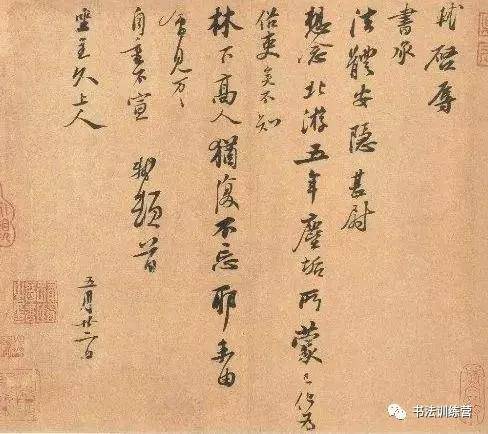 軾啓辱
書承
法體安隱甚尉
想念北游五年塵垢所蒙已化為
俗吏矣不知
林下高人猶復不忘耶未由
會見万万
自重不宣 軾頓首
坐主久上人
五月廿二日
书法训练营